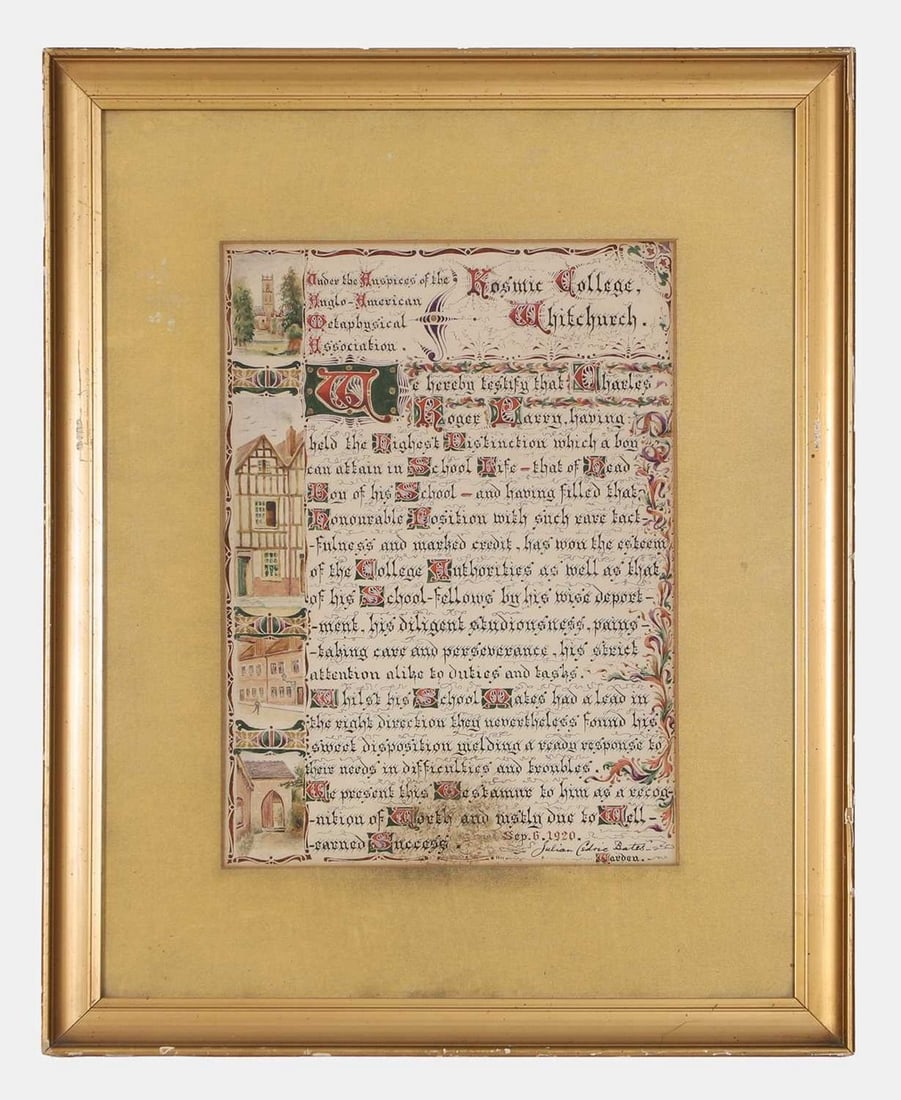 Under the Auspices of the
Anglo-American
Metaphysical
Association.
Kosmic College,
Whitchurch.
We hereby testify that Charles
Roger Harry, having
held the Highest Distinction which a boy
can attain in School Life – that of Head
Boy of his School – and having filled that
Honourable Position with such rare tact-
-fulness and marked credit, has won the esteem
of the College Authorities as well as that
of his School-fellows by his wise deport-
-ment, his diligent studiousness, pains-
-taking care and perseverance, his strict
attention alike to duties and tasks.
Whilst his School Mates had a lead in
the right direction they nevertheless found his
sweet disposition melding a ready response to
their needs in difficulties and troubles.
We present this Testamur to him as a recog-
-nition of Worth and justly due to Well-
-earned Success.
Sep. 6. 1920.
Julian Cedric Bates
Warden.